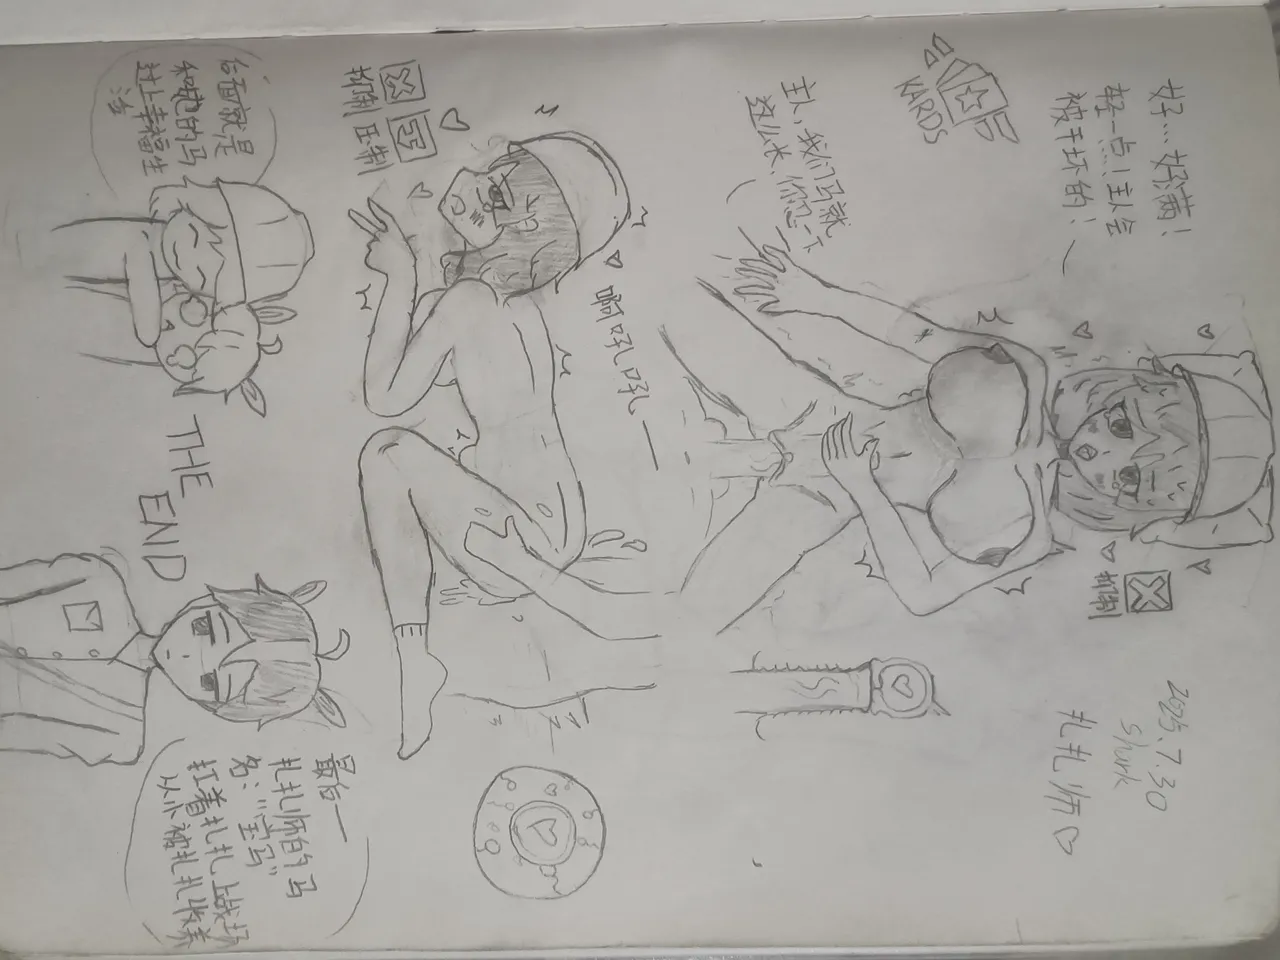 好…好满！
轻一点！主人会
被干坏的！
KARDS
主人,我们马就
这么长,你忍一下
抑制
2025.7.30
shurk
扎扎师
抑制 压制
后面就是
和她的马
过上幸福生
活
THE END
最后——
扎扎师的马
名:“宝马”
扛着扎扎上战场
从小被扎扎收养